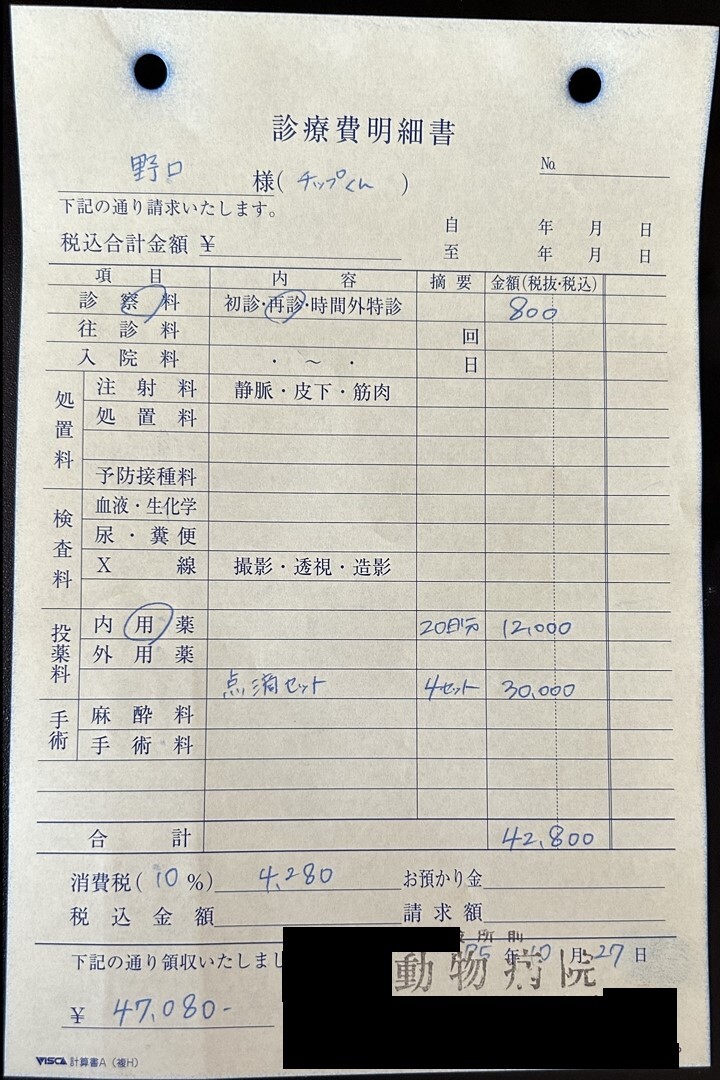 診療費明細書
野口 様( チップくん )
No.
下記の通り請求いたします。
自 年 月 日
税込合計金額 ¥
至 年 月 日
項目 内容 摘要 金額(税抜・税込)
診察料 初診・再診・時間外特診 800
往診料 回
入院料 ・ ~ ・ 日
処置料
注射料 静脈・皮下・筋肉
処置料
予防接種料
検査料
血液・生化学
尿・糞便
X線 撮影・透視・造影
投薬料
内用薬 20日分 12,000
外用薬
点滴セット 4セット 30,000
手術
麻酔料
手術料
合計 42,800
消費税( 10 %) 4,280 お預かり金
税込金額 請求額
所前
下記の通り領収いたしまし 25年 10月 27日
動物病院
¥ 47,080-
VISCA 計算書A(複H)